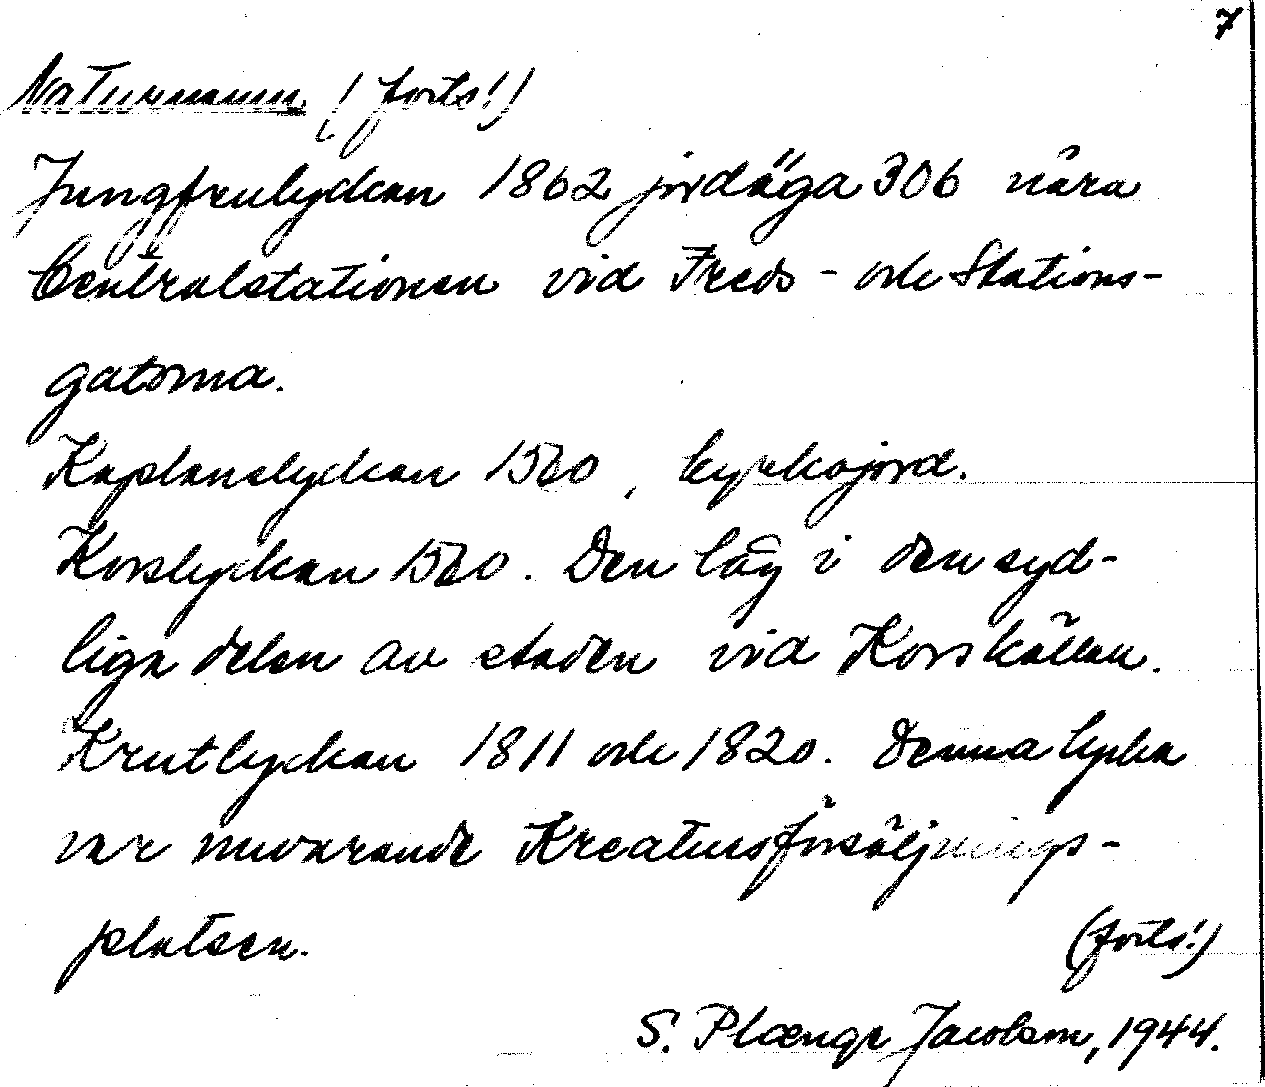 7
Naturnamn (forts!)
Jungfrulyckan 1862 jordäga 306 nära
Centralstationen vid Freds- och Stations-
gatorna.
Kaplanslyckan 1560, kyrkojord.
Korslyckan 1560. Den låg i den syd-
liga delen av staden vid Korskällan.
Krutlyckan 1811 och 1820. Denna lycka
var nuvarande Kreatursförsäljnings-
platsen.
(forts!)
S. Plænge Jacobson, 1944.